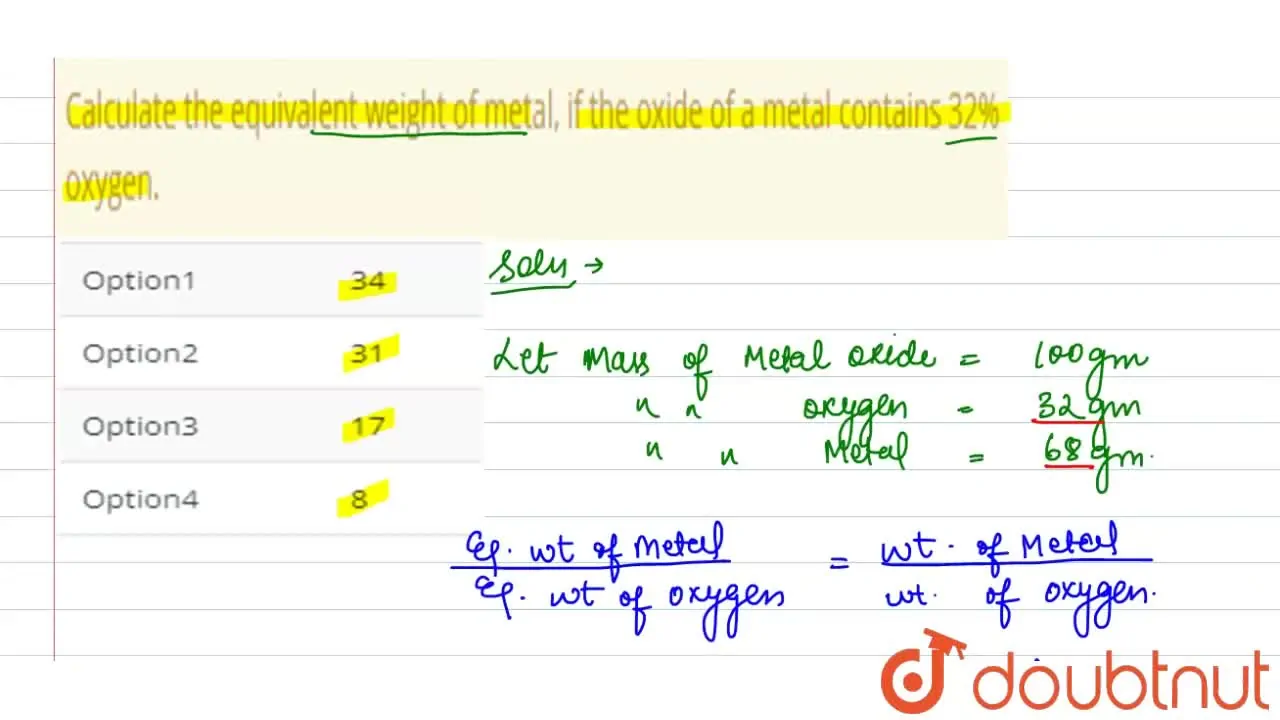 Calculate the equivalent weight of metal, if the oxide of a metal contains 32%
oxygen.
Option1 34
Option2 31
Option3 17
Option4 8
Soln →
Let Mass of Metal oxide = 100gm
" " oxygen = 32gm
" " Metal = 68gm.
Eq. wt of metal / Eq. wt of oxygen = wt. of Metal / wt. of oxygen.
doubtnut